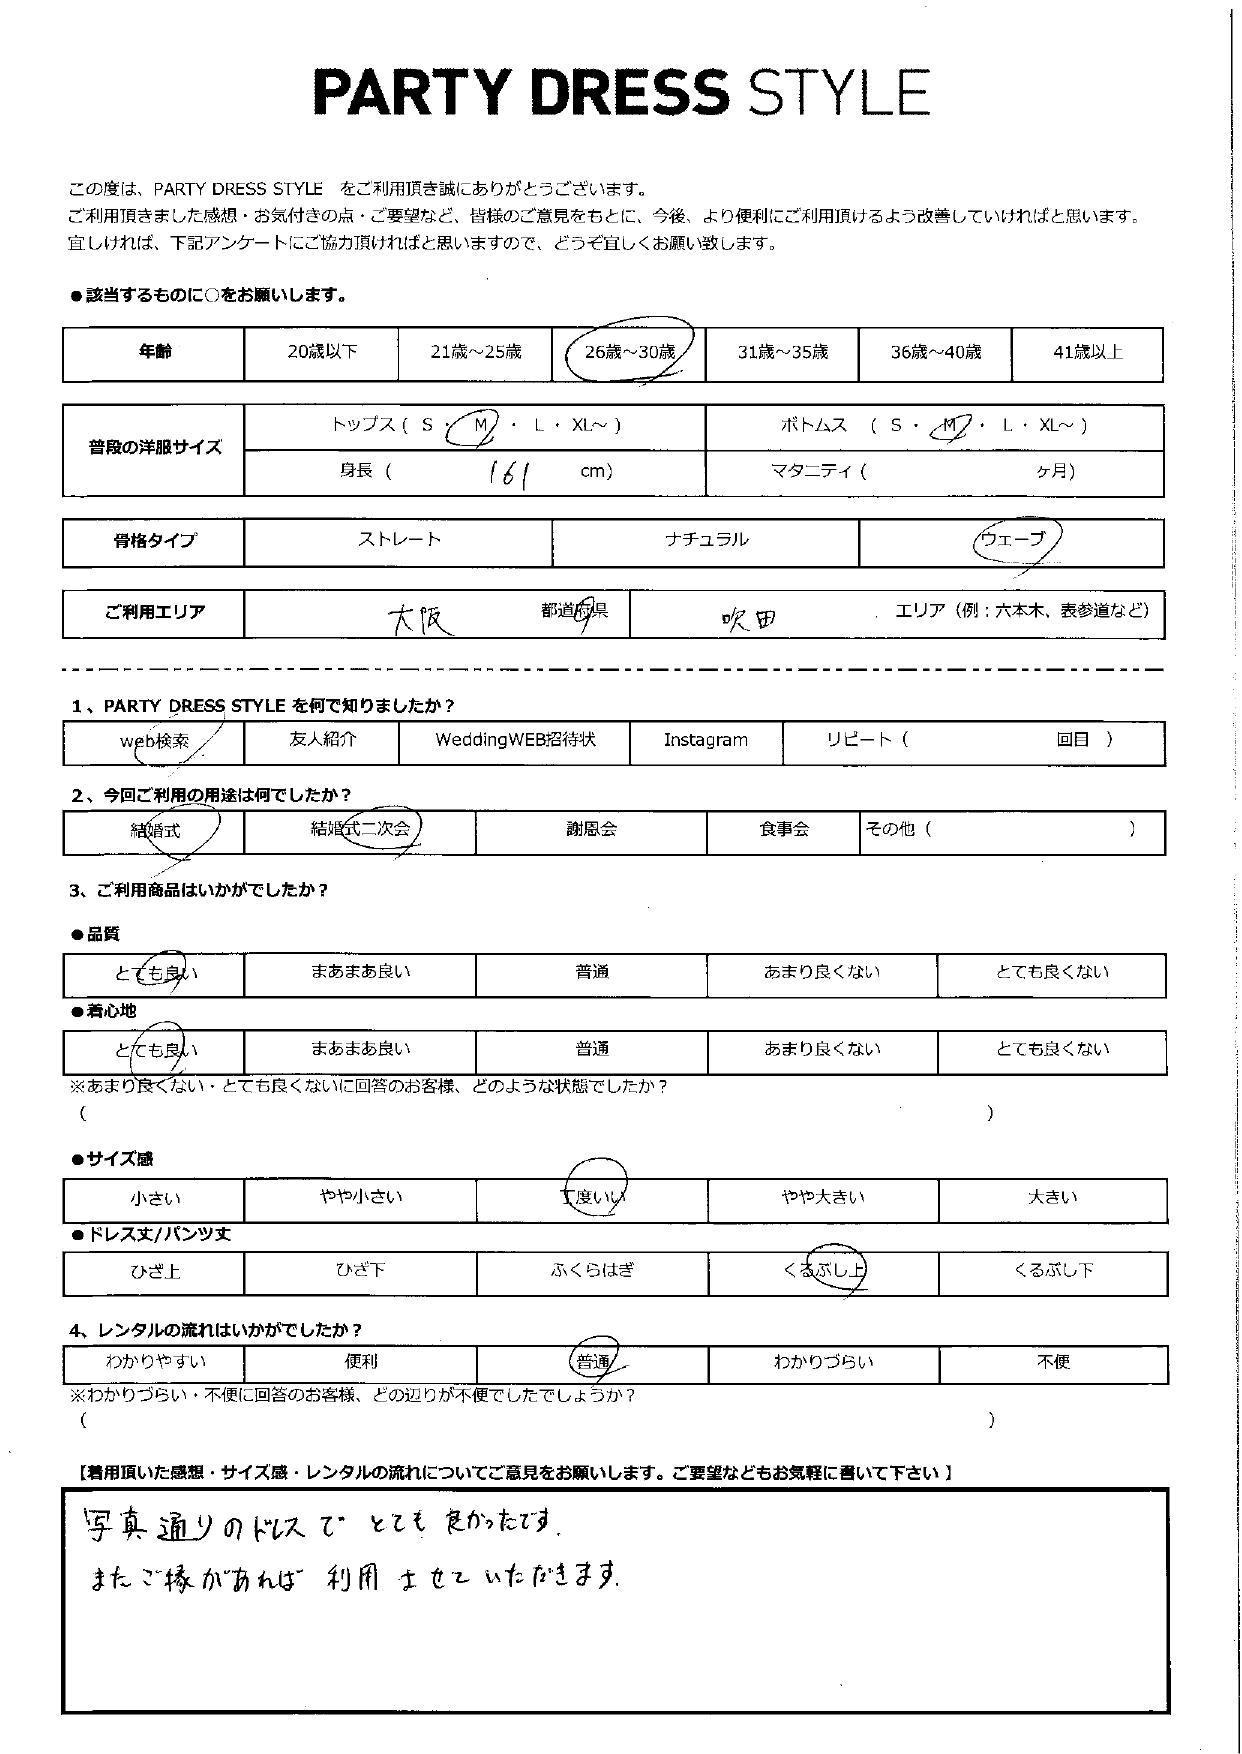 PARTY DRESS STYLE
この度は、PARTY DRESS STYLE をご利用頂き誠にありがとうございます。
ご利用頂きました感想・お気付きの点・ご要望など、皆様のご意見をもとに、今後、より便利にご利用頂けるよう改善していければと思います。
宜しければ、下記アンケートにご協力頂ければと思いますので、どうぞ宜しくお願い致します。
●該当するものに○をお願いします。
年齢 20歳以下 21歳～25歳 26歳～30歳 31歳～35歳 36歳～40歳 41歳以上
普段の洋服サイズ トップス ( S ・ M ・ L ・ XL～ ) ボトムス ( S ・ M ・ L ・ XL～ )
身長 ( 161 cm) マタニティ ( ヶ月)
骨格タイプ ストレート ナチュラル ウェーブ
ご利用エリア 大阪 都道府県 吹田 エリア（例：六本木、表参道など）
1、PARTY DRESS STYLE を何で知りましたか？
web検索 友人紹介 WeddingWEB招待状 Instagram リピート ( 回目 )
2、今回ご利用の用途は何でしたか？
結婚式 結婚式二次会 謝恩会 食事会 その他 ( )
3、ご利用商品はいかがでしたか？
●品質
とても良い まあまあ良い 普通 あまり良くない とても良くない
●着心地
とても良い まあまあ良い 普通 あまり良くない とても良くない
※あまり良くない・とても良くないに回答のお客様、どのような状態でしたか？
( )
●サイズ感
小さい やや小さい 丁度いい やや大きい 大きい
●ドレス丈/パンツ丈
ひざ上 ひざ下 ふくらはぎ くるぶし上 くるぶし下
4、レンタルの流れはいかがでしたか？
わかりやすい 便利 普通 わかりづらい 不便
※わかりづらい・不便に回答のお客様、どの辺りが不便でしたでしょうか？
( )
【着用頂いた感想・サイズ感・レンタルの流れについてご意見をお願いします。ご要望などもお気軽に書いて下さい】
写真通りのドレスで とても 良かったです.
またご縁があれば 利用 させて いただきます.